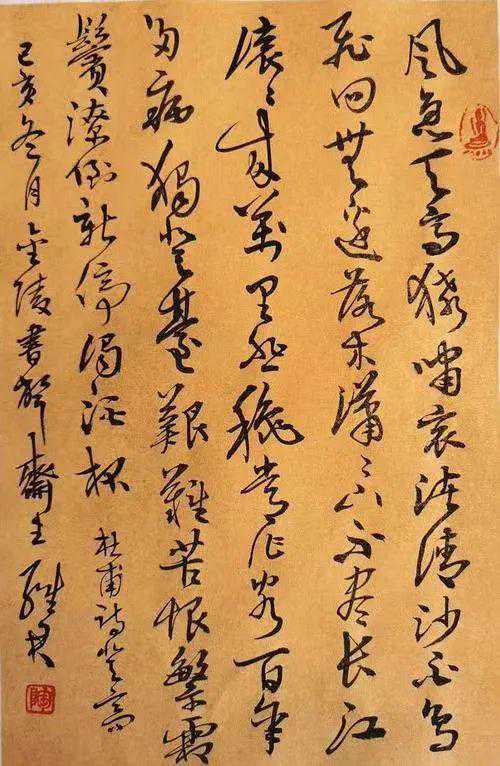 風急天高猿嘯哀渚清沙白鳥
飛回無邊落木瀟々下不盡長江
滾々來萬里悲秋常作客百年
多病獨登臺艱難苦恨繁霜
鬢潦倒新停濁酒杯
杜甫詩登高
己亥冬月金陵書齋主